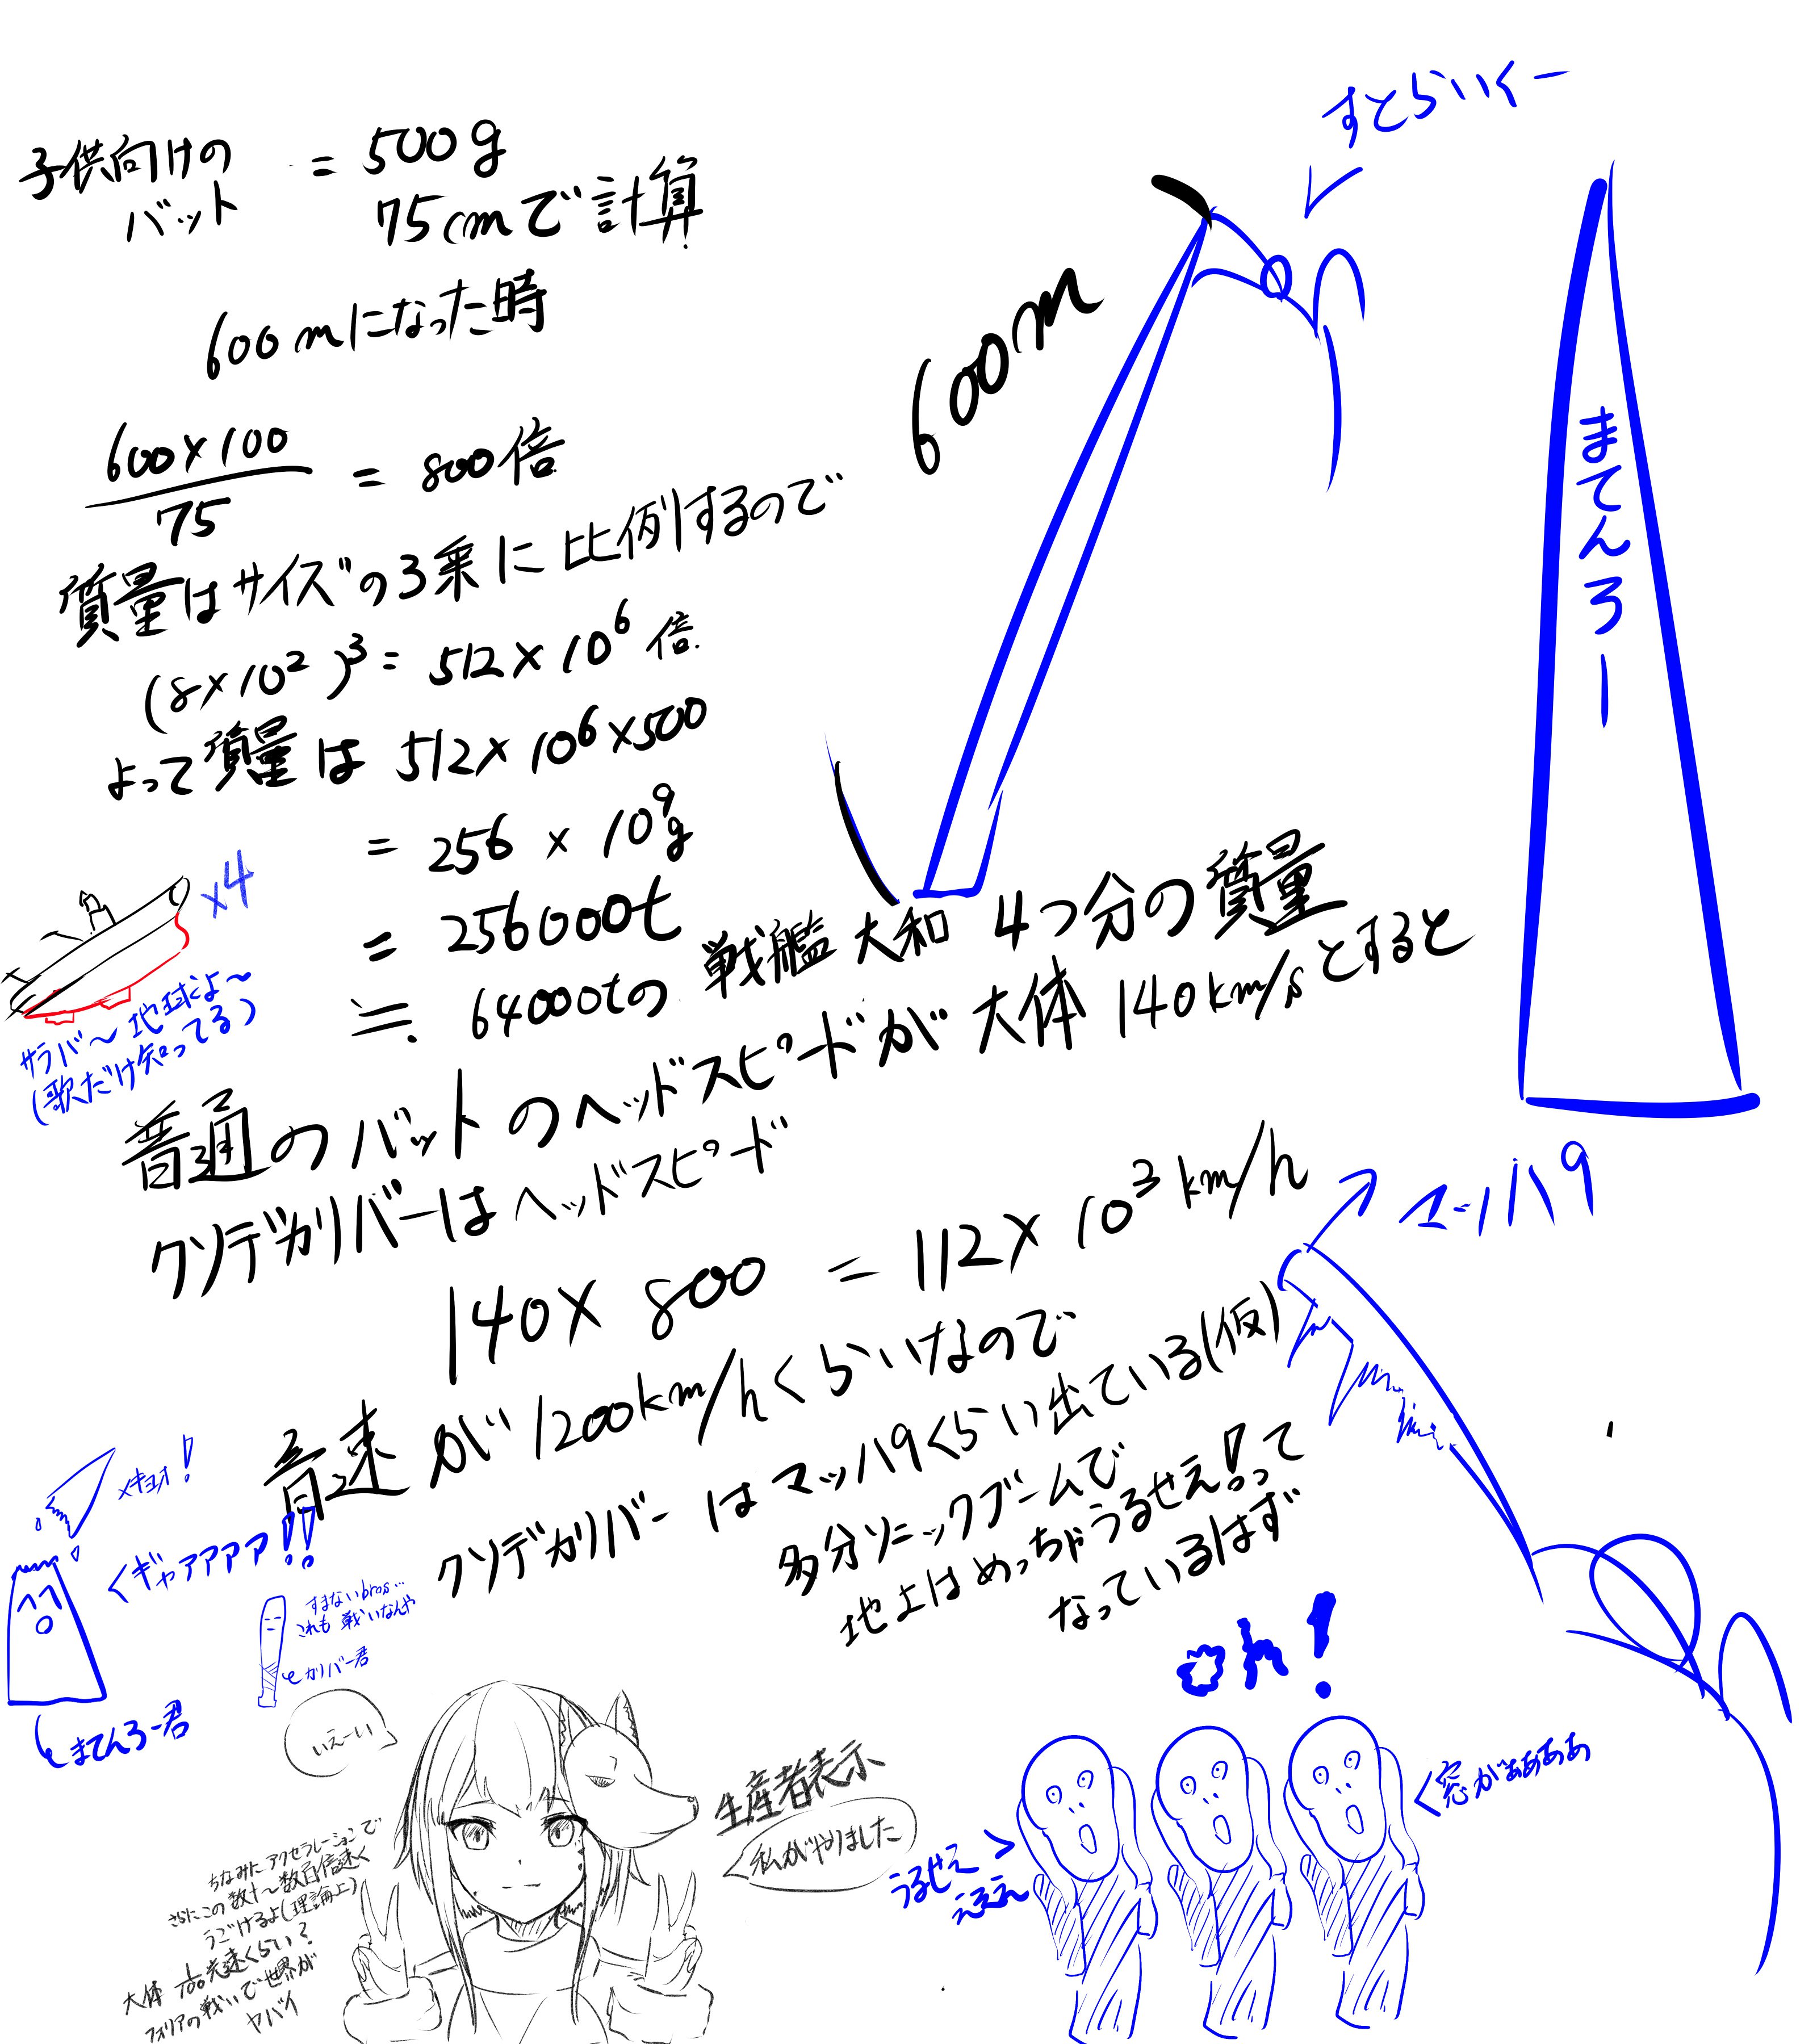 すとらいくー
子供向けの
バット
= 500g
75cmで計算
600mになった時
600m
600×100
75
= 800倍
まてんろー
質量はサイズの3乗に比例するので
(8×10²)³=512×10⁶倍
よって質量は512×10⁶×500
= 256×10⁹g
= 256000t
×4
≒ 64000tの戦艦大和4つ分の質量
サラバ～地球よ～
(歌だけ知ってる)
普通のバットのヘッドスピードが大体140km/sとすると
クソデカリバーはヘッドスピード
140×800=112×10³km/h
マッハ9
音速が1200km/hくらいなので
クソデカリバーはマッハ9くらい出ている(仮)
多分ソニックブームで
地上はめっちゃうるせえ!って
なっているはず
メキョォ!
ギャァァァァ!!
すまないbros...
これも戦いなんや
カリバー君
まてんろー君
いえーい
生産者表示
私がやりました
Oh!
うるせえ
えええ
窓がぁぁぁぁ
ちなみにアクセラレーションで
さらにこの数十～数百倍速く
うごけるよ(理論上)
大体1/100光速くらい?
フォリアの戦いで世界が
ヤバイ